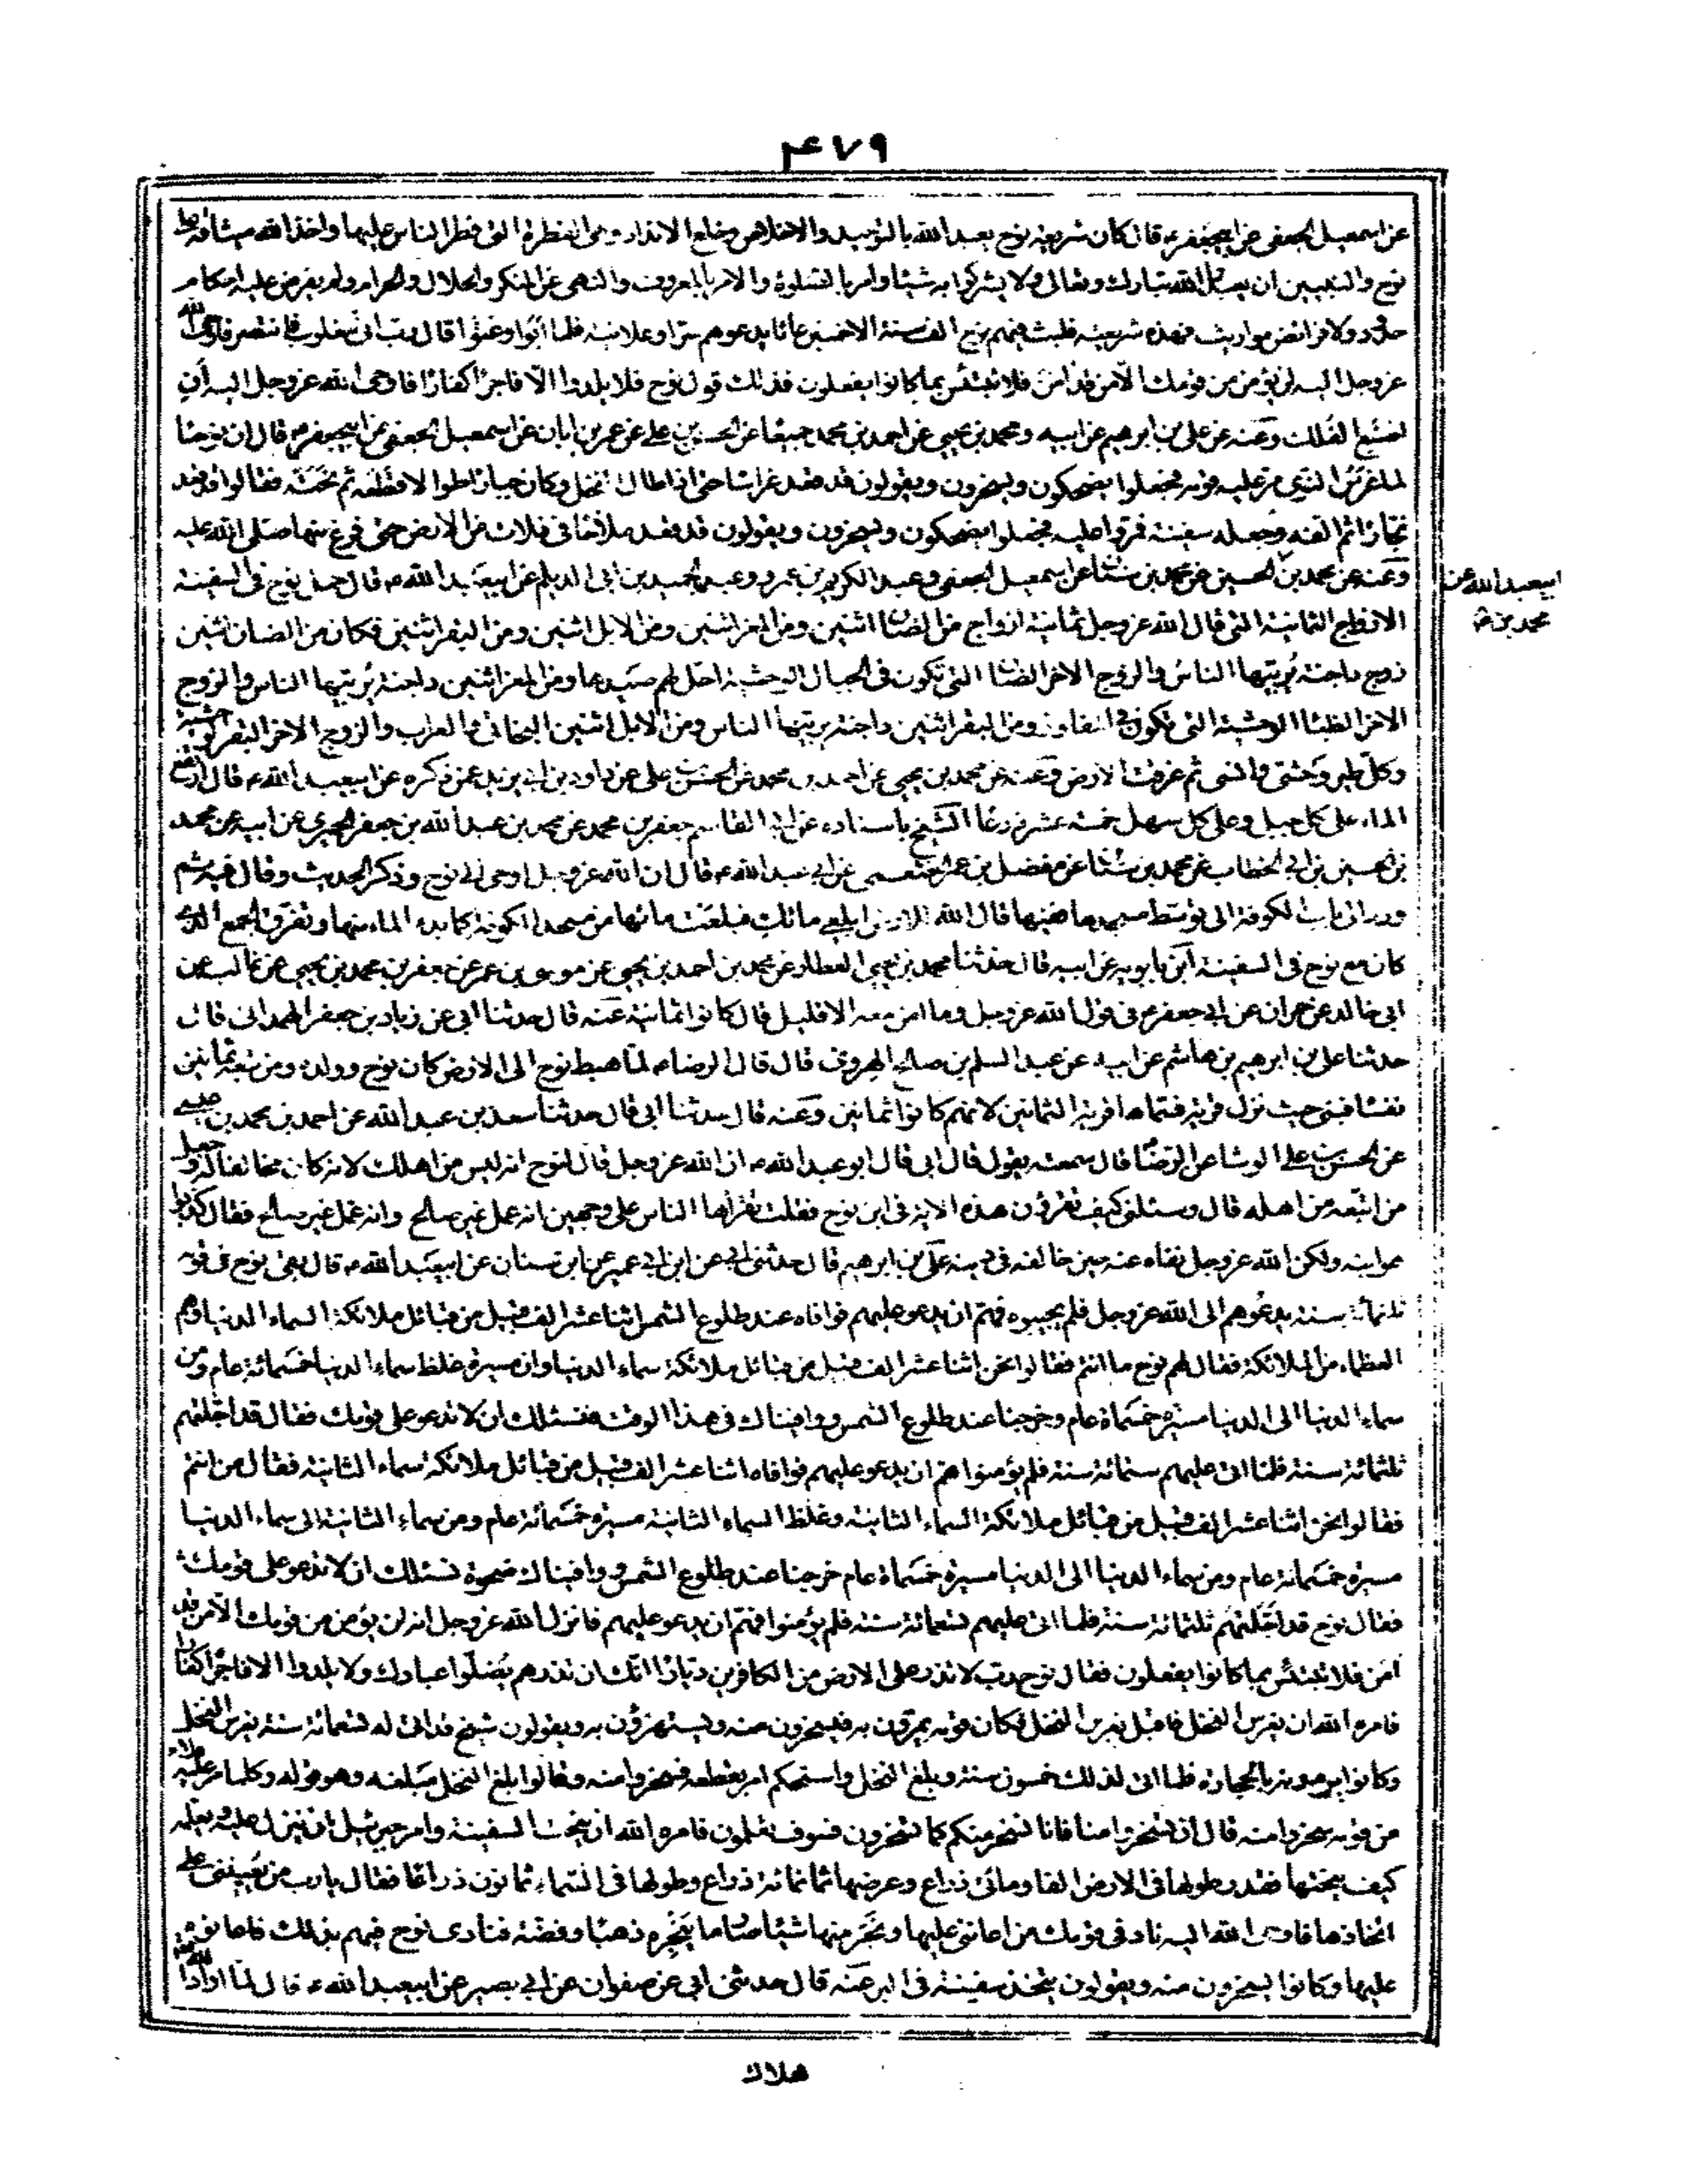 ٤٧٩
عن اسمعيل الجعفى عن ابيجعفر ع قال كان شريعة نوح يعبد الله بالتوحيد والاخلاص وخلع الانداد وهى الفطرة التى فطر الناس عليها واخذ الله ميثاقه على
نوح والنبيين ان يعبدوا الله تبارك وتعالى ولا يشركوا به شيئا وامر بالصلوة والامر بالمعروف والنهى عن المنكر والحلال والحرام ولم يفرض عليه احكام
حدود ولا فرائض مواريث فهذه شريعته فلبث فيهم نوح الف سنة الا خمسين عاما يدعوهم سرا وعلانية فلما ابوا وعتوا قال رب انى مغلوب فانتصر فاوحى الله
عز وجل اليه لن يؤمن من قومك الا من قد امن فلا تبتئس بما كانوا يفعلون فذلك قول نوح فلا يلدوا الا فاجرا كفارا فاوحى الله عز وجل اليه أن
اصنع الفلك وعنه عن على بن ابرهيم عن ابيه ومحمد بن يحيى عن احمد بن محمد جميعا عن الحسن بن على عن عمر بن ابان عن اسمعيل الجعفى عن ابيجعفر ع قال ان نوحا
لما غرس النوى مر عليه قومه فجعلوا يضحكون ويسخرون ويقولون قد قعد غراسا حتى اذا طال النخل وكان جبارا طوالا قطعه ثم نحته فقالوا قد قعد
نجارا ثم الفه وجعله سفينة فمروا عليه فجعلوا يضحكون ويسخرون ويقولون قد قعد ملاحا فى فلات من الارض حتى فرغ منها صلى الله عليه
وعنه عن محمد بن الحسين عن محمد بن سنان عن اسمعيل الجعفى وعبد الكريم بن عمرو وعبد الحميد بن ابى الديلم عن ابيعبد الله ع قال حمل نوح فى السفينة
ابيعبد الله عن
محمد بن
الازواج الثمانية التى قال الله عز وجل ثمانية ازواج من الضان اثنين ومن المعز اثنين ومن الابل اثنين ومن البقر اثنين فكان من الضان اثنين
زوج داجنة يربيها الناس والزوج الاخر الضان التى تكون فى الجبال الوحشية احل لهم صيدها ومن المعز اثنين داجنة يربيها الناس والزوج
الاخر الظباء الوحشية التى تكون فى المفاوز ومن البقر اثنين داجنة يربيها الناس ومن الابل اثنين البخاتى والعراب والزوج الاخر البقر الوحشية
وكل طير وحشى وانسى ثم غرقت الارض وعنه عن محمد بن يحيى عن احمد بن محمد عن الحسن بن على عن داود بن ابى يزيد عمن ذكره عن ابيعبد الله ع قال ارتفع
الماء على كل جبل وعلى كل سهل خمسة عشر ذراعا الشيخ باسناده عن ابى القاسم جعفر بن محمد عن محمد بن عبد الله بن جعفر الحميرى عن ابيه عن محمد
بن الحسين بن ابى الخطاب عن محمد بن سنان عن مفضل بن عمر الجعفى عن ابى عبد الله ع قال ان الله عز وجل اوحى الى نوح وذكر الحديث وقال فيه ثم
ورد الى باب الكوفة الى وسط مسجدها ففيها قال الله للارض ابلعى مائك فبلعت مائها من مسجد الكوفة كما بدء الماء منها وتفرق الجمع الذى
كان مع نوح فى السفينة ابن بابويه عن ابيه قال حدثنا محمد بن يحيى العطار عن محمد بن احمد بن يحيى عن موسى بن عمر عن جعفر بن محمد بن يحيى عن غالب عن
ابى خالد عن حمران عن ابى جعفر ع فى قول الله عز وجل وما امن معه الا قليل قال كانوا ثمانية عنه قال حدثنا ابى عن زياد بن جعفر الهمدانى قال
حدثنا على بن ابرهيم بن هاشم عن ابيه عن عبد السلم بن صالح الهروى قال قال الرضا ع لما هبط نوح الى الارض كان نوح وولده ومن تبعه ثمانين
نفسا فبنى حيث نزل قرية فسماها قرية الثمانين لانهم كانوا ثمانين وعنه قال حدثنا ابى قال حدثنا سعد بن عبد الله عن احمد بن محمد بن عيسى
عن الحسن بن على الوشا عن الرضا ع قال سمعته يقول قال ابى قال ابو عبد الله ع ان الله عز وجل قال لنوح انه ليس من اهلك لانه كان مخالفا له وجعل
من اتبعه من اهله قال وسئلنى كيف تقرؤن هذه الاية فى ابن نوح فقلت تقراها الناس على وجهين انه عمل غير صالح وانه عمل غير صالح فقال كذبوا
هو ابنه ولكن الله عز وجل نفاه عنه حين خالفه فى دينه على بن ابرهيم قال حدثنى ابى عن ابن ابى عمير عن ابن سنان عن ابيعبد الله ع قال بقى نوح فى قومه
ثلثمائة سنة يدعوهم الى الله عز وجل فلم يجيبوه فهم ان يدعو عليهم فوافاه عند طلوع الشمس اثنا عشر الف قبيل من قبائل ملائكة السماء الدنيا وهم
العظماء من الملائكة فقال لهم نوح ما انتم فقالوا نحن اثنا عشر الف قبيل من قبائل ملائكة سماء الدنيا وان مسيرة غلظ سماء الدنيا خمسمائة عام ومن
سماء الدنيا الى الدنيا مسيرة خمسمائة عام وخرجنا عند طلوع الشمس ووافيناك فى هذا الوقت فنسئلك ان لا تدعو على قومك فقال قد اجلتهم
ثلثمائة سنة فلما اتى عليهم ستمائة سنة فلم يؤمنوا هم ان يدعو عليهم فوافاه اثنا عشر الف قبيل من قبائل ملائكة سماء الثانية فقال من انتم
فقالوا نحن اثنا عشر الف قبيل من قبائل ملائكة السماء الثانية وغلظ السماء الثانية مسيرة خمسمائة عام ومن سماء الثانية الى سماء الدنيا
مسيرة خمسمائة عام ومن سماء الدنيا الى الدنيا مسيرة خمسمائة عام خرجنا عند طلوع الشمس ووافيناك ضحوة نسئلك ان لا تدعو على قومك
فقال نوح قد اجلتهم ثلثمائة سنة فلما اتى عليهم تسعمائة سنة فلم يؤمنوا فهم ان يدعو عليهم فانزل الله عز وجل انه لن يؤمن من قومك الا من قد
امن فلا تبتئس بما كانوا يفعلون فقال نوح رب لا تذر على الارض من الكافرين ديارا انك ان تذرهم يضلوا عبادك ولا يلدوا الا فاجرا كفارا
فامره الله ان يغرس النخل فاقبل يغرس النخل فكان قومه يمرون به فيسخرون منه ويستهزؤن به ويقولون شيخ قد اتى له تسعمائة سنة يغرس النخل
وكانوا يرمونه بالحجارة فلما اتى لذلك خمسون سنة وبلغ النخل واستحكم امر بقطعه فسخروا منه وقالوا بلغ النخل مبلغه وهو قوله وكلما مر عليه ملاء
من قومه سخروا منه قال ان تسخروا منا فانا نسخر منكم كما تسخرون فسوف تعلمون فامره الله ان ينحت السفينة وامر جبرئيل ان ينزل عليه ويعلمه
كيف يتخذها فقدر طولها فى الارض الفا ومائتى ذراع وعرضها ثمانمائة ذراع وطولها فى السماء ثمانون ذراعا فقال يارب من يعيننى على
اتخاذها فاوحى الله اليه ناد فى قومك من اعاننى عليها ونجر منها شيئا صار ما ينجره ذهبا وفضة فنادى نوح فيهم بذلك فاعانوه
عليها وكانوا يسخرون منه ويقولون يتخذ سفينة فى البر عنه قال حدثنى ابى عن صفوان عن ابى بصير عن ابيعبد الله ع قال لما اراد الله
هلاك